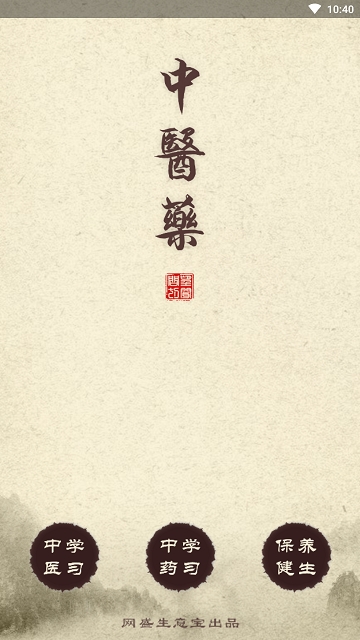 10:40
中
醫
藥
中学
医习
中学
药习
保养
健生
网盛生意宝出品